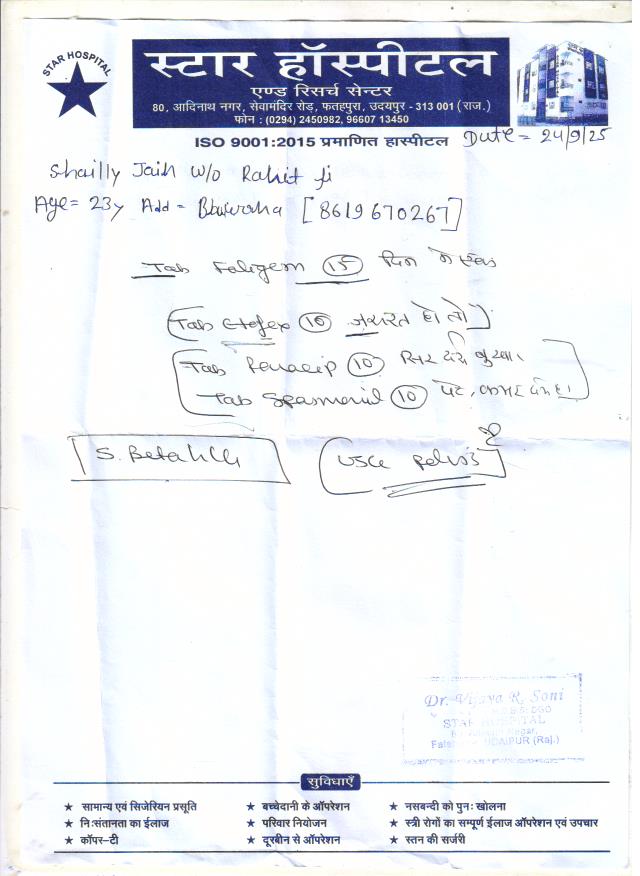 STAR HOSPITAL
स्टार हॉस्पीटल
एण्ड रिसर्च सेन्टर
80, आदिनाथ नगर, सेवामंदिर रोड़, फतहपुरा, उदयपुर - 313 001 (राज.)
फोन : (0294) 2450982, 96607 13450
ISO 9001:2015 प्रमाणित हास्पीटल
Date = 24/9/25
Shailly Jain W/o Rahit Ji
Age = 23y Add = [8619670267]
Tab 15 दिन में एक
Tab 10 जरूरत हो तो
Tab 10 सिर दर्द बुखार
Tab 10 पेट, कमर दर्द
USG Pelvis
Dr. Vijaya R. Soni
STAR HOSPITAL
UDAIPUR (Raj.)
सुविधाएँ
★ सामान्य एवं सिजेरियन प्रसूति ★ बच्चेदानी के ऑपरेशन ★ नसबन्दी को पुनः खोलना
★ निःसंतानता का ईलाज ★ परिवार नियोजन ★ स्त्री रोगों का सम्पूर्ण ईलाज ऑपरेशन एवं उपचार
★ कॉपर-टी ★ दूरबीन से ऑपरेशन ★ स्तन की सर्जरी